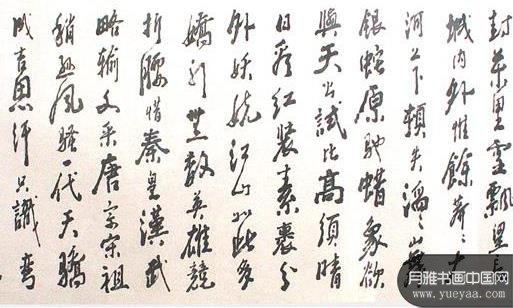 封萬里雪飄望長
城内外惟餘莽〻大
河上下頓失滔〻山舞
銀蛇原馳蜡象欲
與天公試比高須晴
日看紅裝素裹分
外妖嬈江山如此多
嬌引無數英雄競
折腰惜秦皇漢武
略輸文采唐宗宋祖
稍遜風騷一代天驕
成吉思汗只識彎
月雅书画中国网
www.yueyaa.com